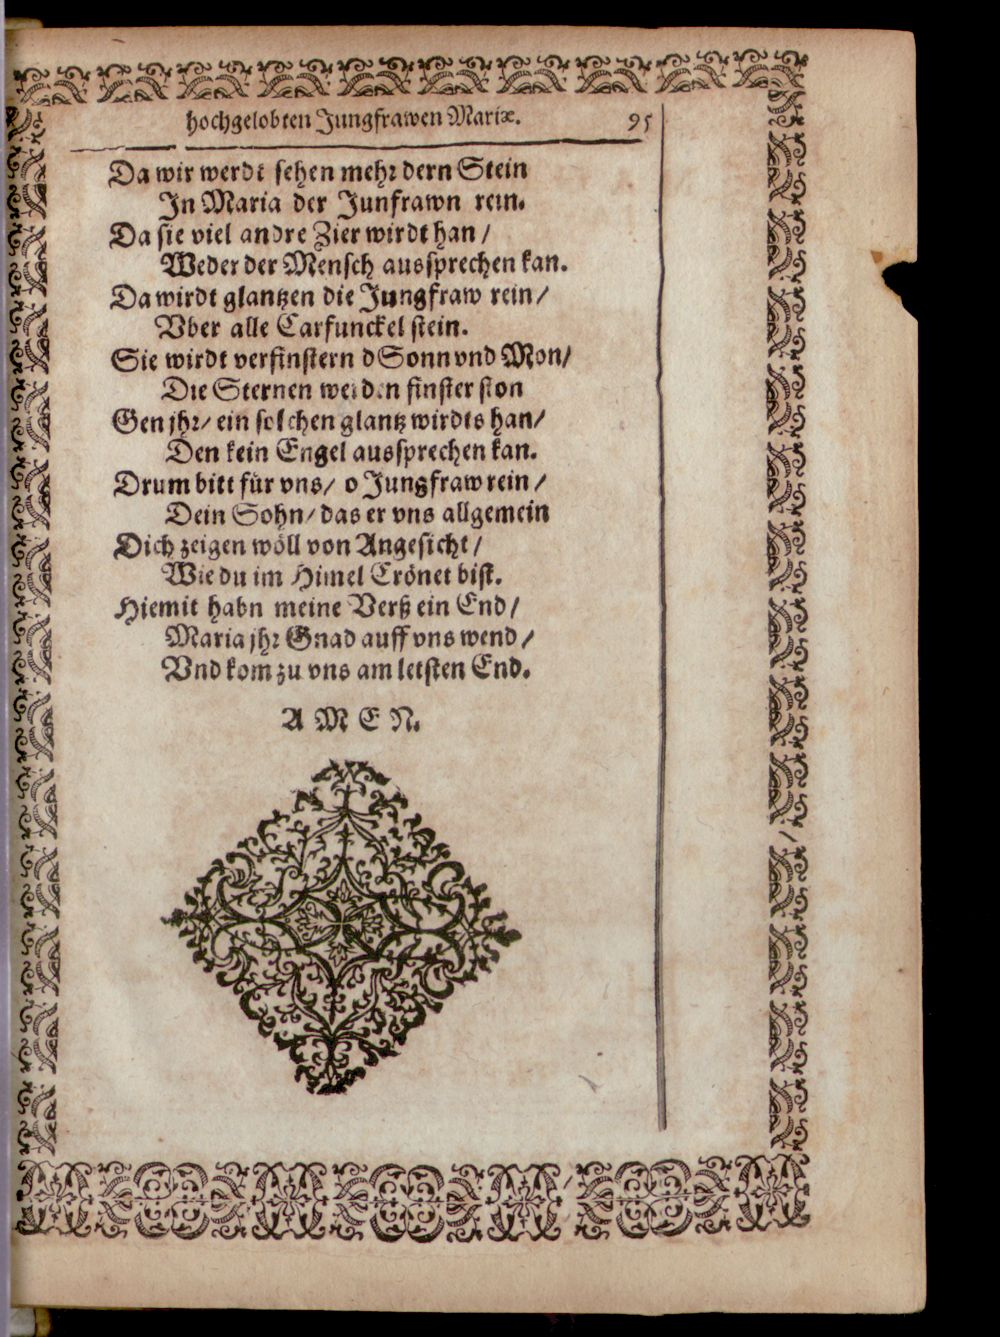 hochgelobten Jungfrawen Mariæ. 95
Da wir werdt sehen mehr dern Stein
In Maria der Junfrawn rein.
Da sie viel andre Zier wirdt han /
Weder der Mensch aussprechen kan.
Da wirdt glantzen die Jungfraw rein /
Vber alle Carfunckel stein.
Sie wirdt verfinstern d Sonn vnd Mon /
Die Sternen werden finster ston
Gen jhr / ein solchen glantz wirdts han /
Den kein Engel aussprechen kan.
Drum bitt für vns / o Jungfraw rein /
Dein Sohn / das er vns allgemein
Dich zeigen wöll von Angesicht /
Wie du im Himel Crönet bist.
Hiemit habn meine Verß ein End /
Maria jhr Gnad auff vns wend /
Vnd kom zu vns am letsten End.
A M E N.